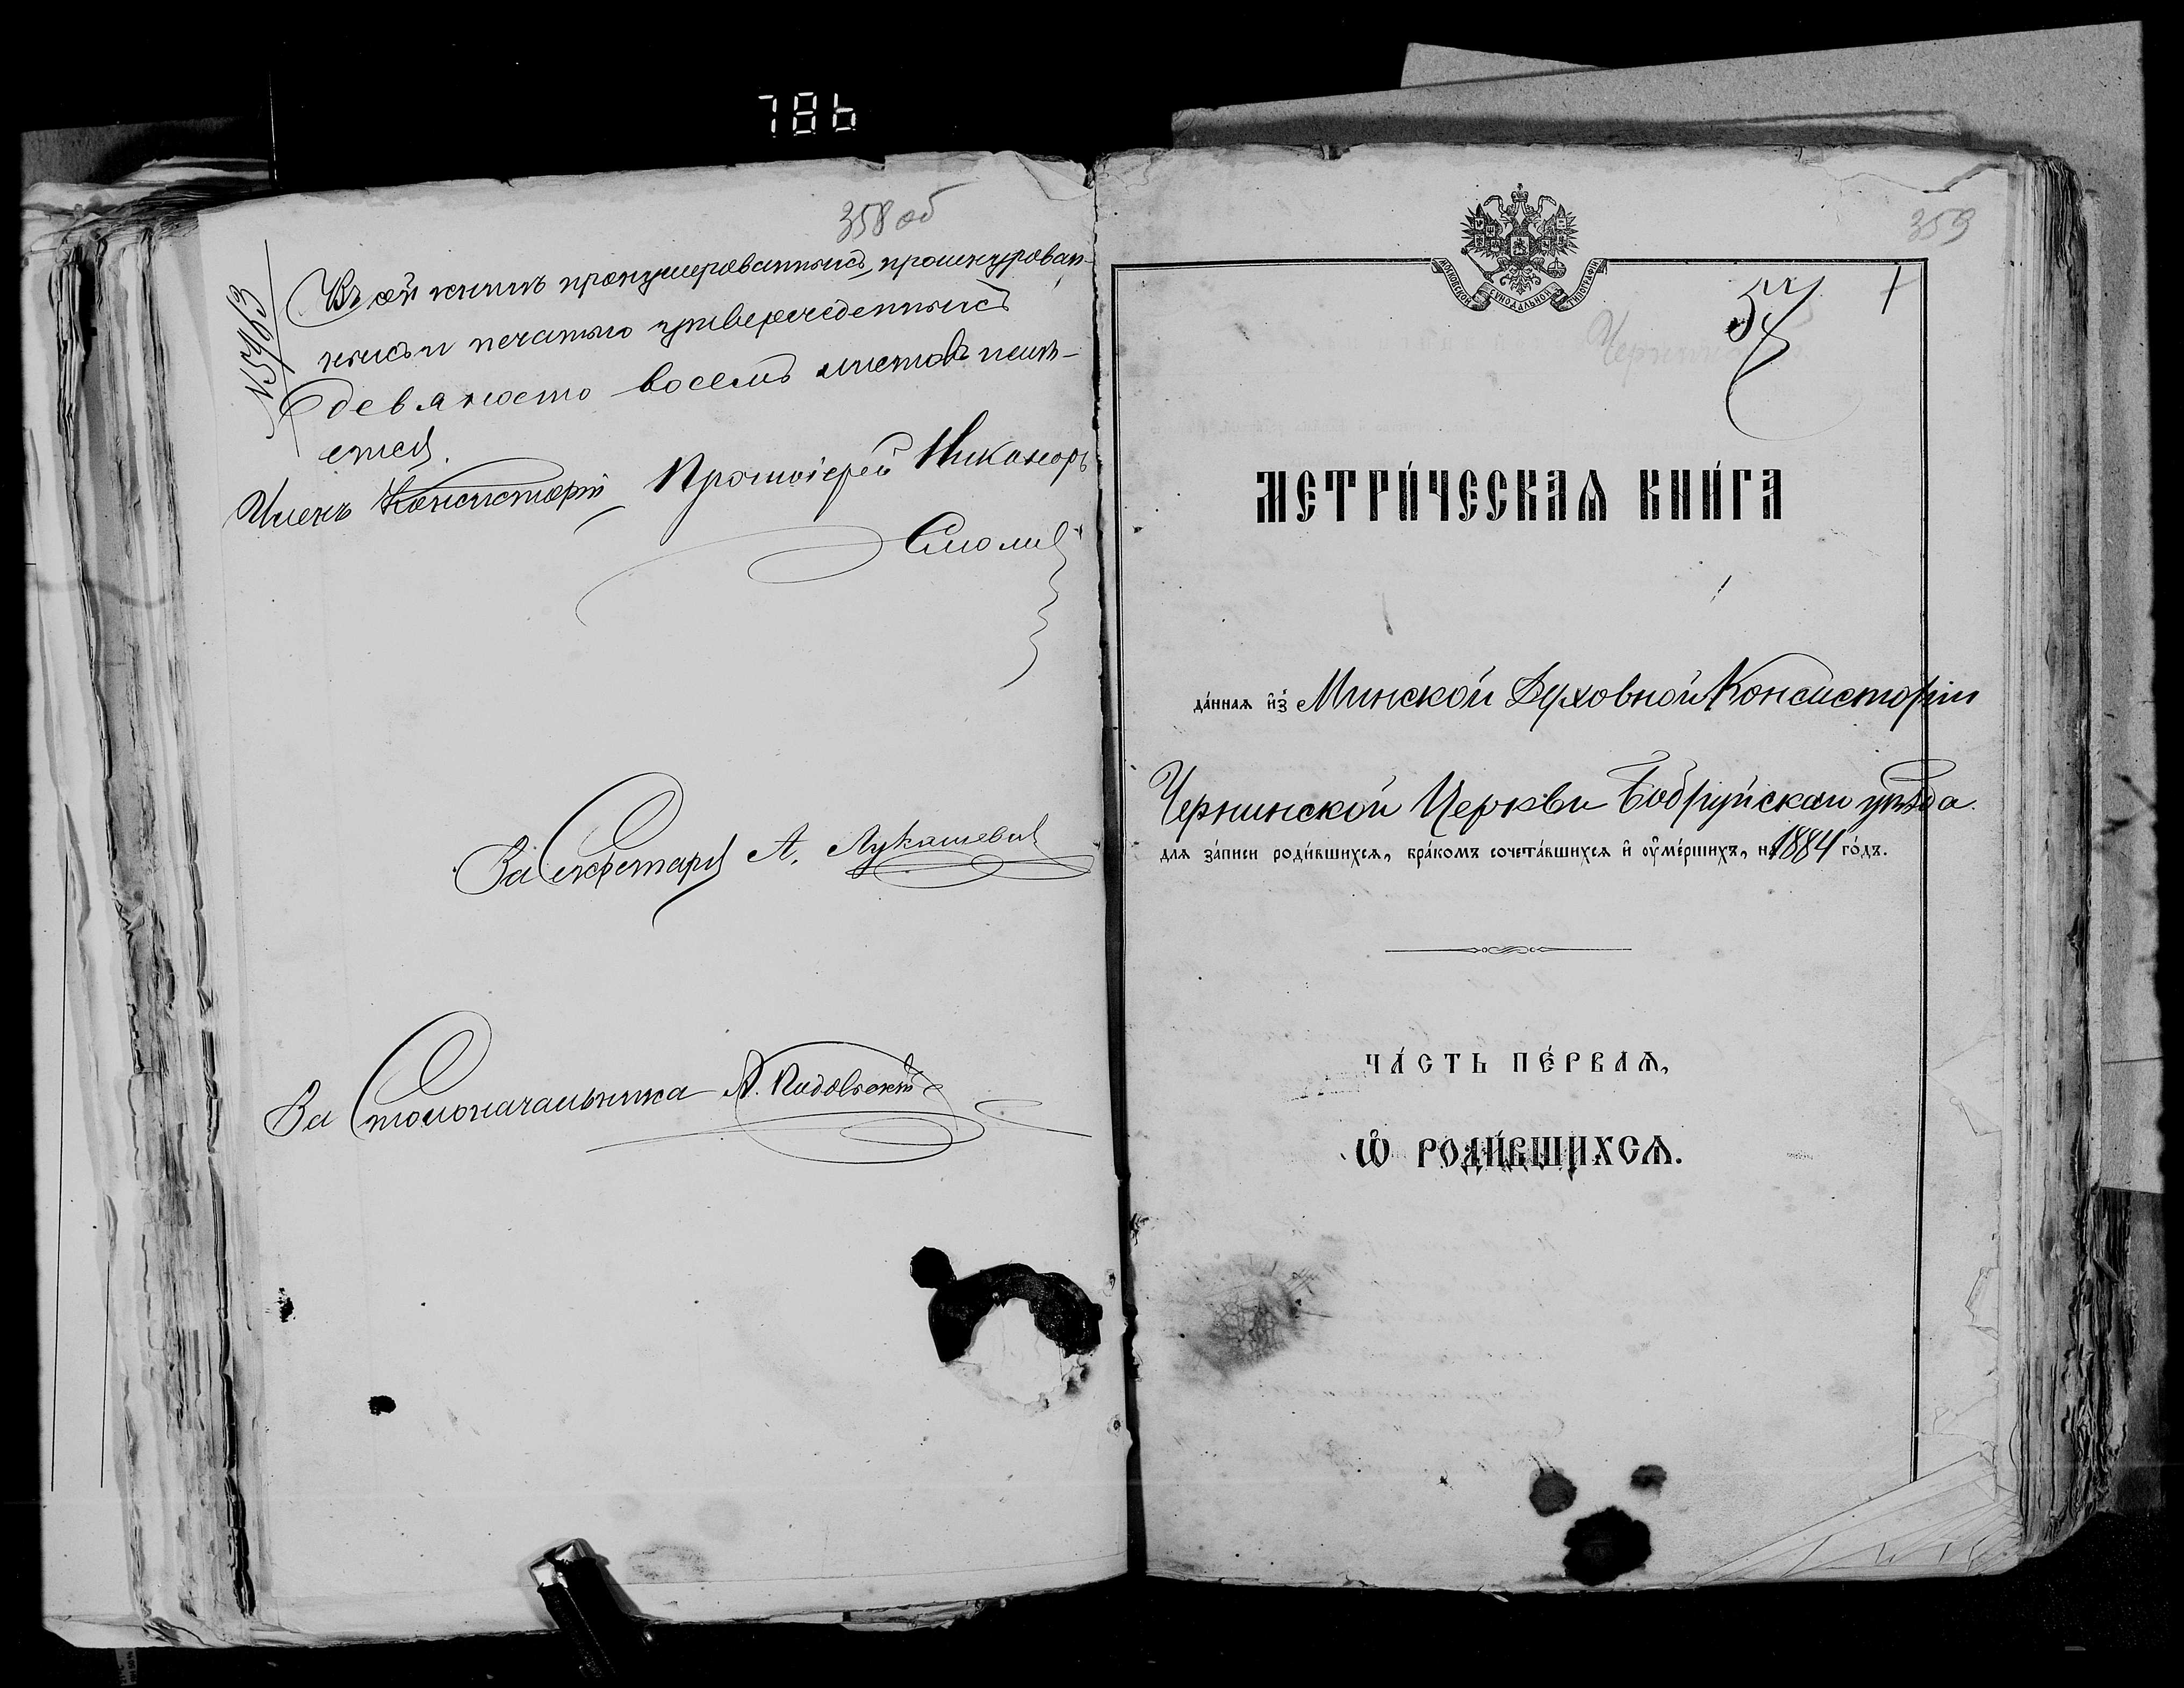 786
358 об
№ 5763
Въ сей книгѣ пронумерованныхъ, прошнурован-
ныхъ и печатью утвержденныхъ
девяносто восемь листовъ
Членъ Консисторіи Протоіерей Никаноръ
Смолич
За Секретаря А. Лукашевич
За Столоначальника А.
359
1
57
МОСКОВСКОЙ СѴНОДАЛЬНОЙ ТИПОГРАФІИ
МЕТРИ́ЧЕСКАѦ КНИ́ГА
да́ннаѧ и҆з̾ Минской Духовной Консисторіи
Чернинской Церкви Бобруйскаго уѣзда
для за́писи роди́вшихсѧ, бра́комъ сочета́вшихсѧ и҆ ᲂу҆ме́ршихъ, на 1884 го́дъ.
ЧА́СТЬ ПЕ́РВАѦ,
Ѽ РОДИ́ВШИХСѦ.